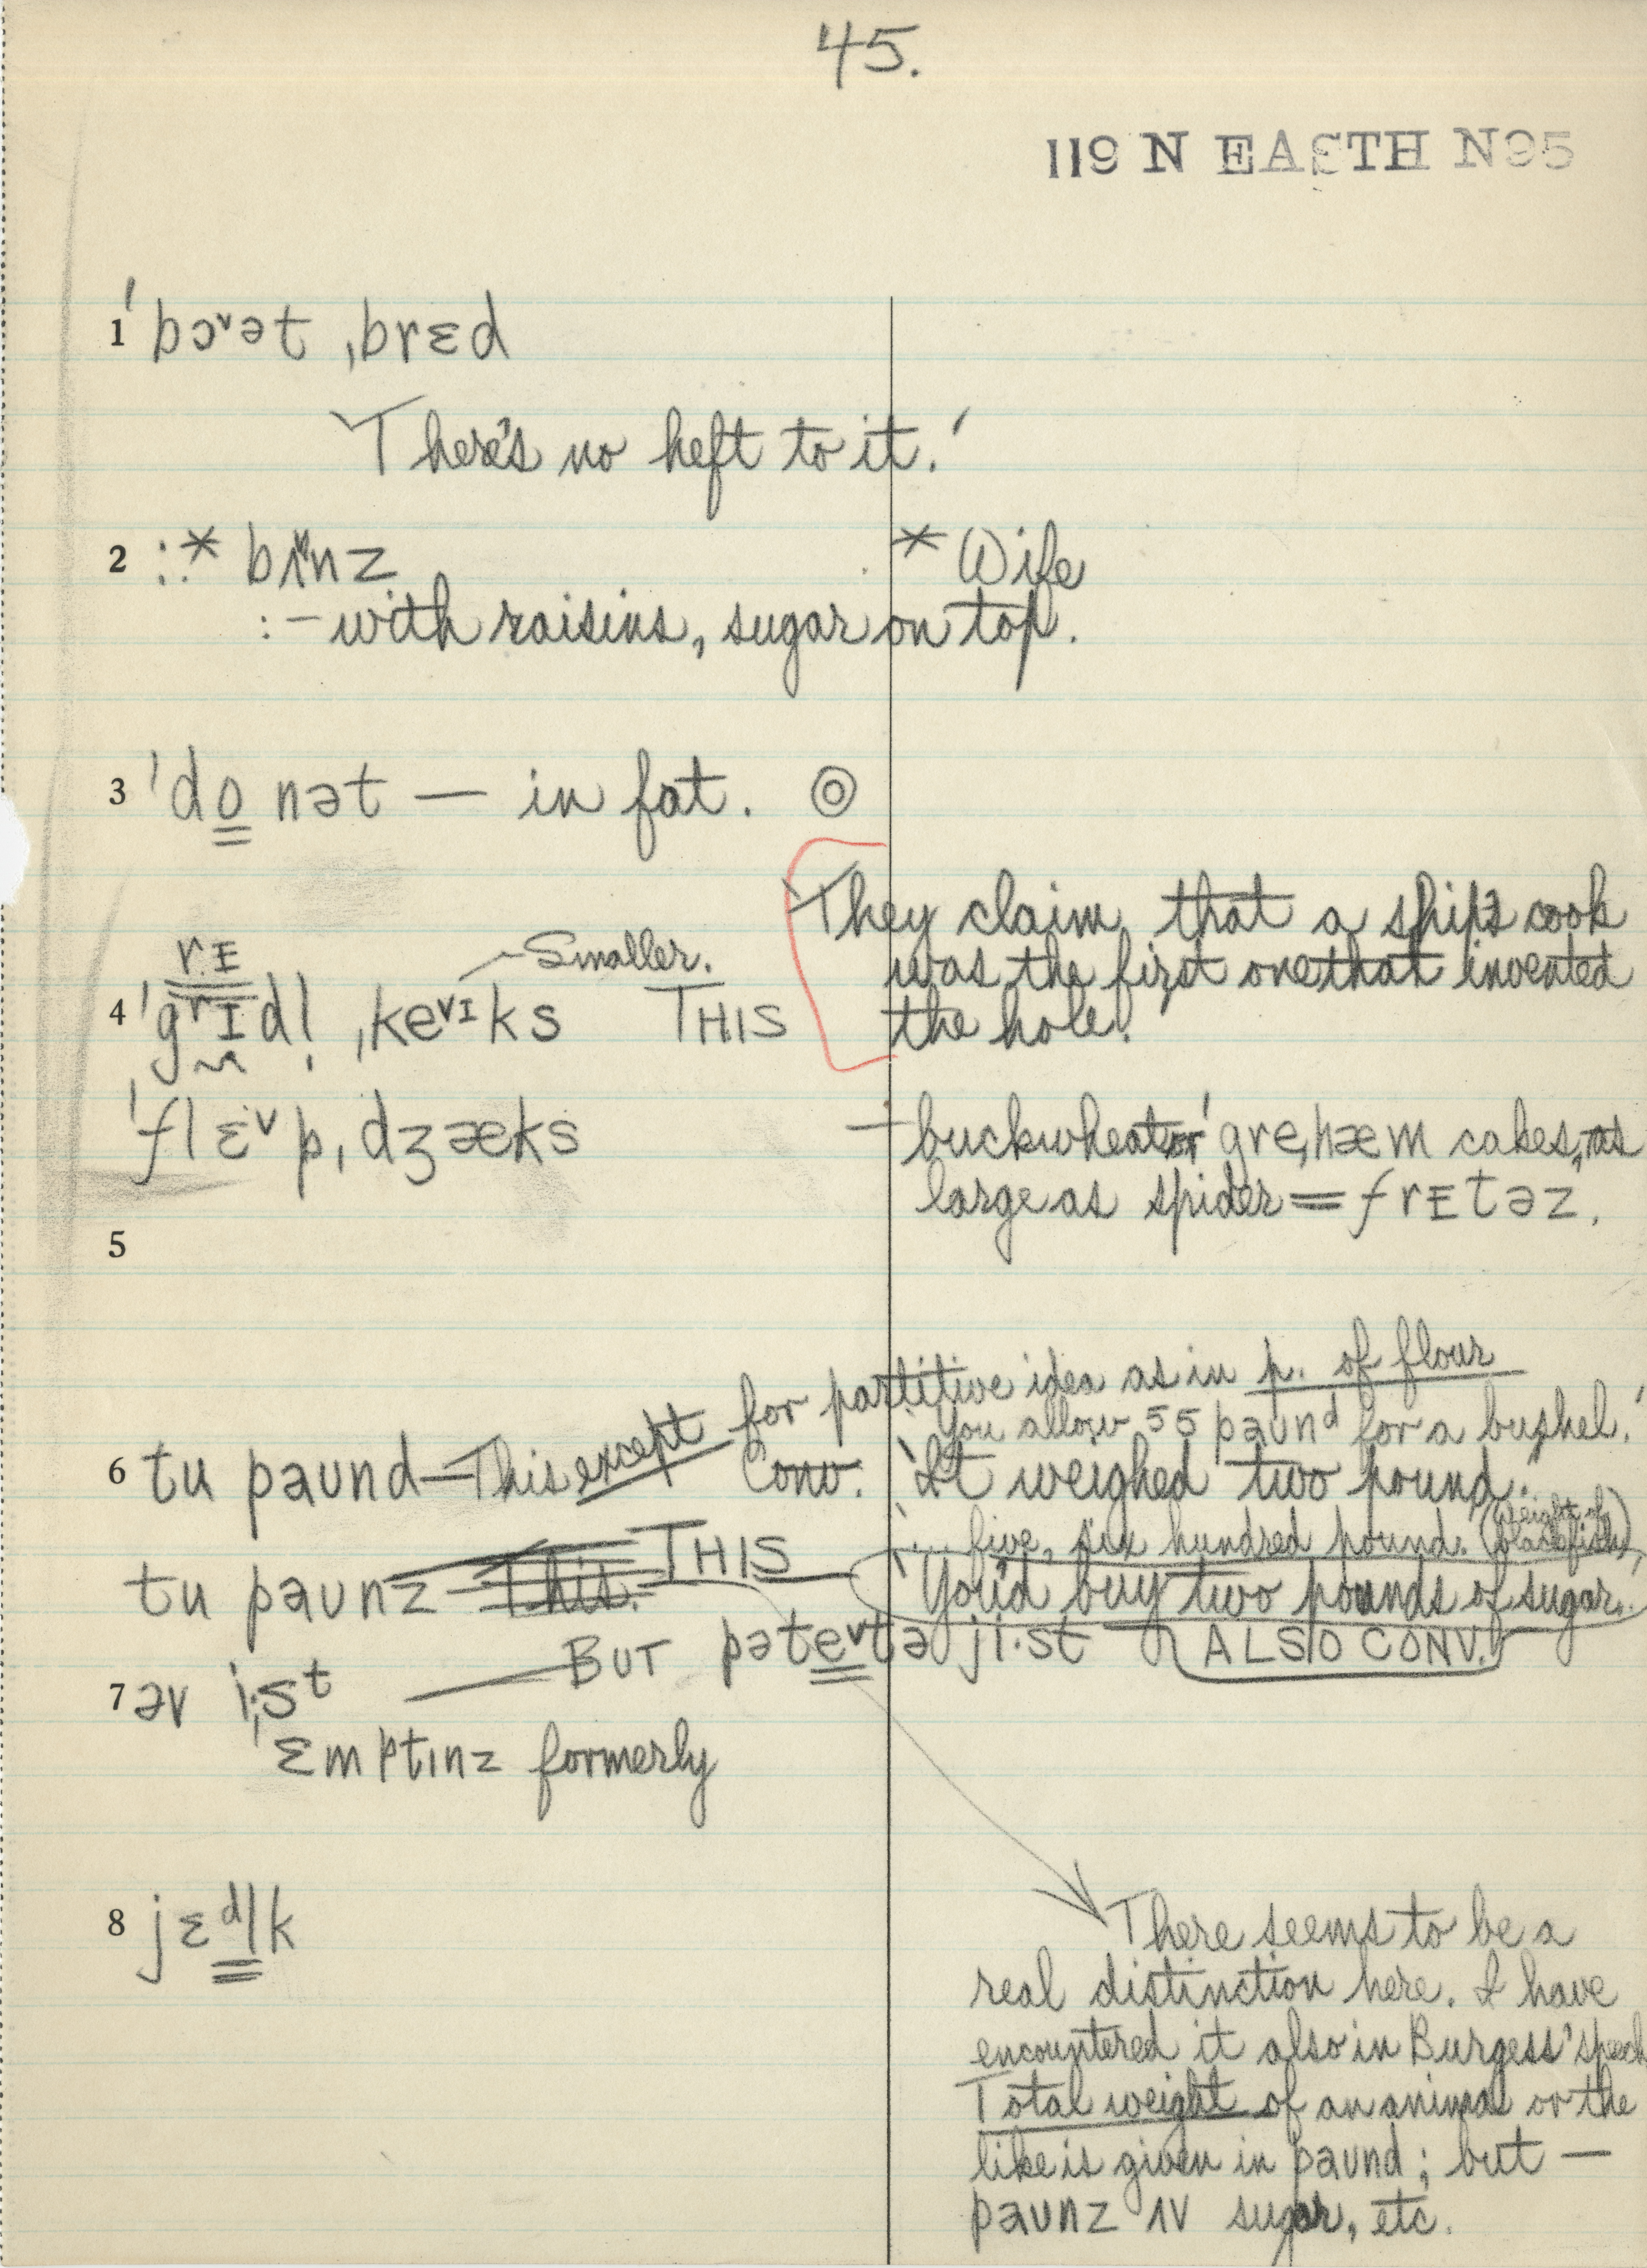 45.
119 N EASTH N95
1 ˈbɔ˅ət ˌbrɛd
'There's no heft to it.'
2 :.* bɪ˅nz * Wife
:– with raisins, sugar on top.
3 ˈdo nət — in fat. ◎
They claim that a ship's cook
was the first one that invented
the hole.
rᴇ — Smaller.
4 ˈgrɪdl̩ ˌke˅ɪks THIS
ˈflɛ˅pˌdʒæks — buckwheat or ˈgreˌhæm cakes, as
large as spider = frᴇtəz.
5
for partitive idea as in p. of flour
'You allow 55 paund for a bushel.'
6 tu paund — This except Conv. 'It weighed two pound.'
'... five, six hundred pound. (weight of blackfish)'
tu paunz — This. THIS — 'You'd buy two pounds of sugar.'
ALSO CONV.
7 əv i·st — BUT pəte˅tə ji·st
ˈɛmptɪnz formerly
8 jɛdlk
There seems to be a
real distinction here. I have
encountered it also in Burgess' speech
Total weight of an animal or the
like is given in paund; but —
paunz ʌv sugar, etc.